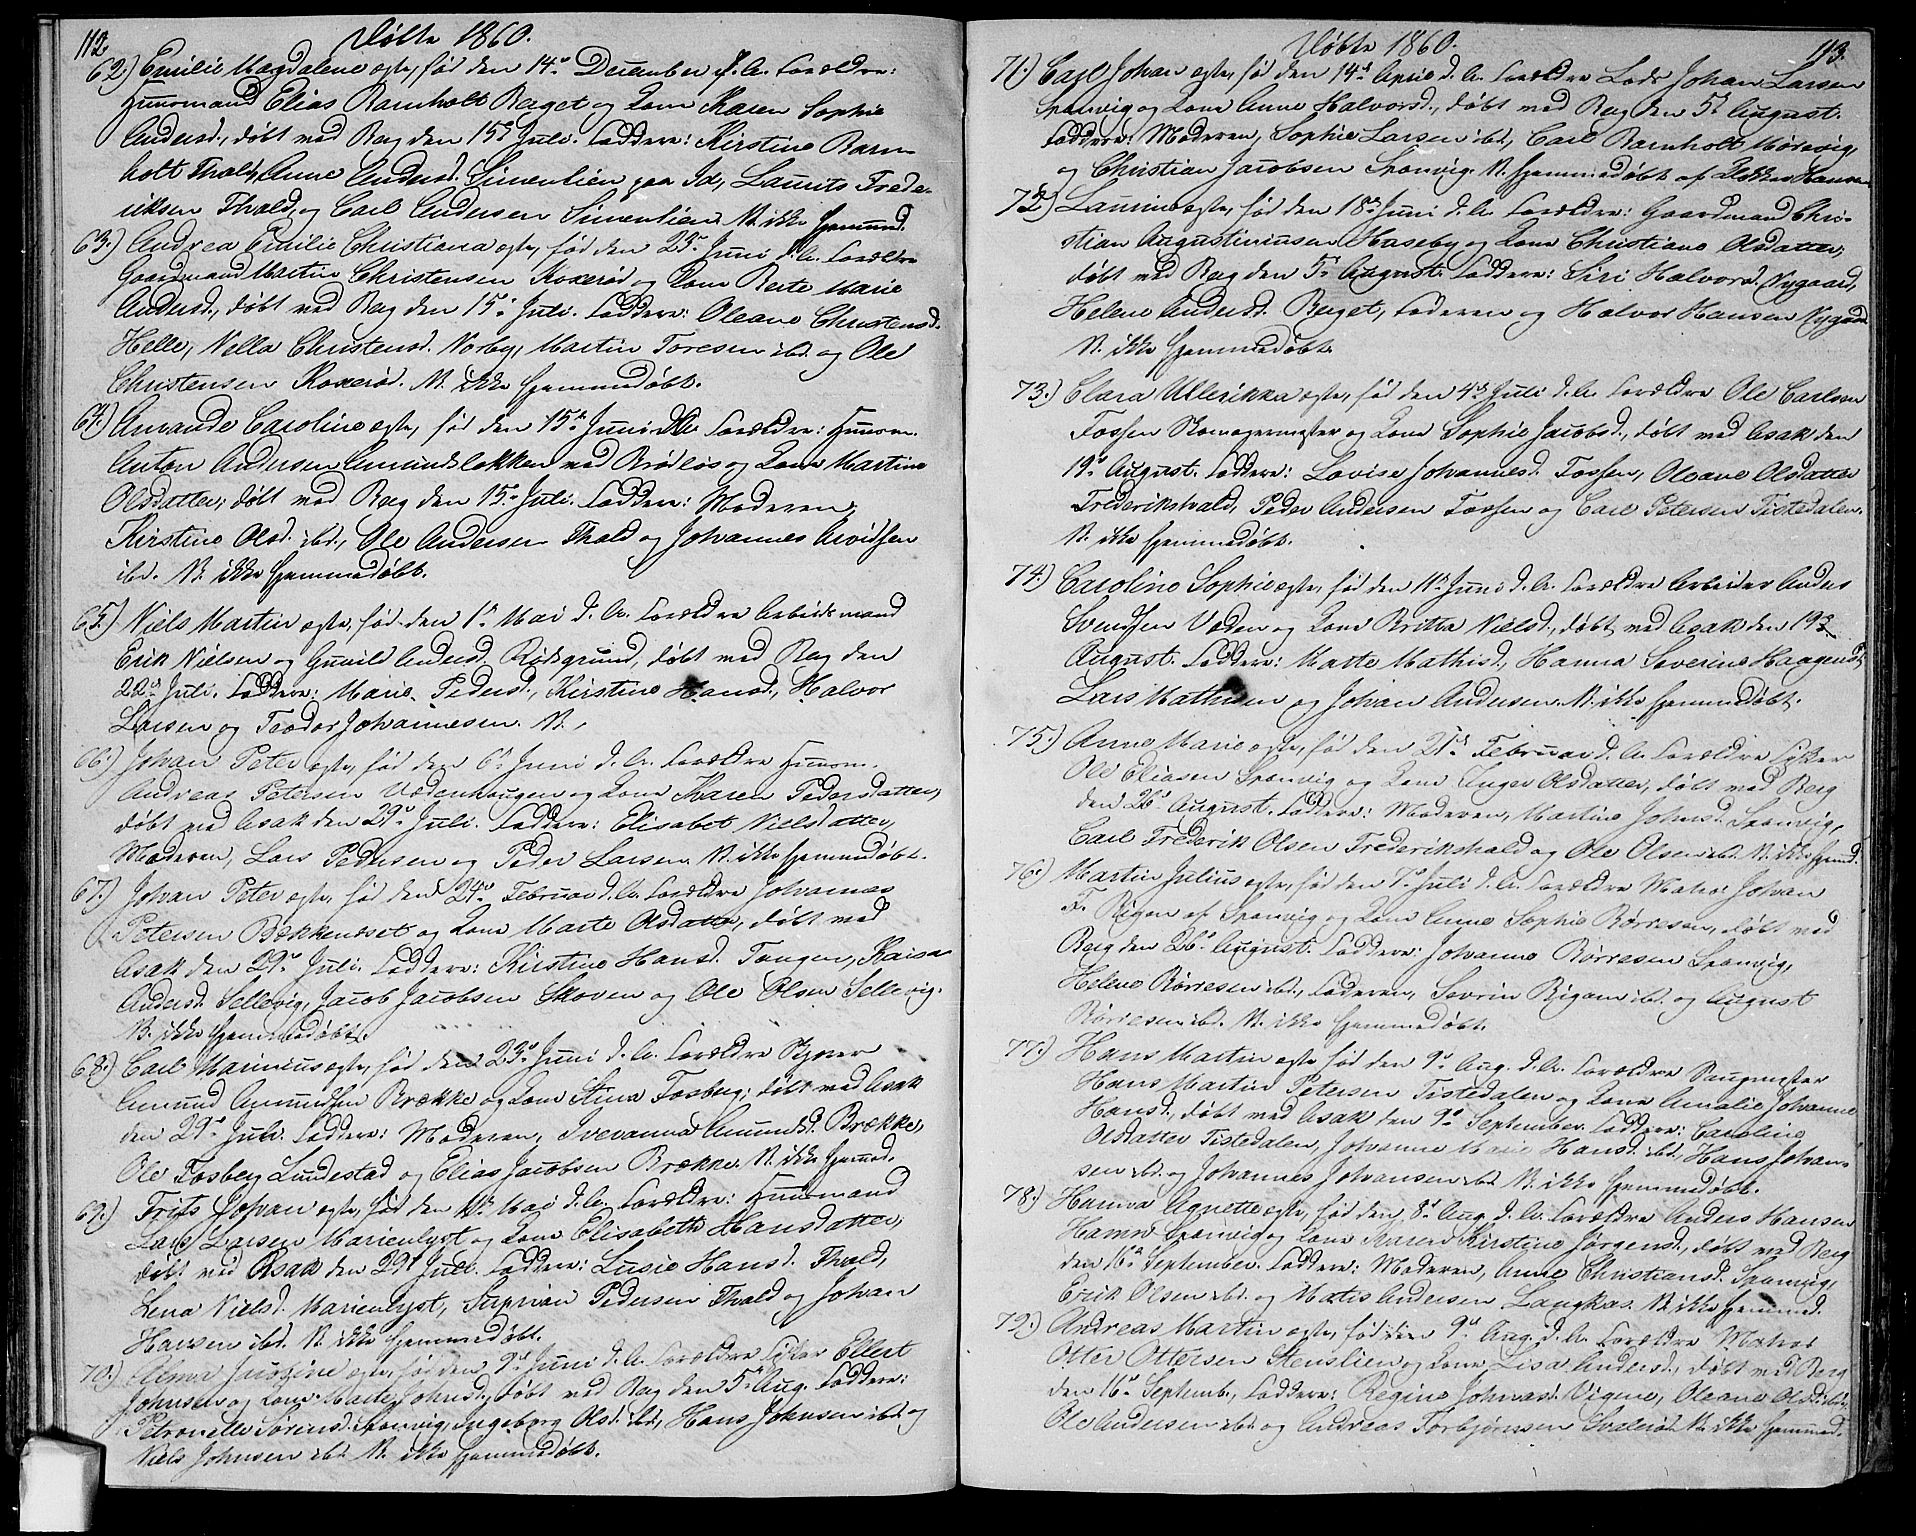 112
Døbte 1860.
62.) Emilie Magdalene ægte, født den 14de December f. A. Forældre:
Huusmand Elias Ramholt Berget og Kone Karen Sophie
Andersd., døbt ved Berg den 15de Juli. Faddere: Kirstine Ram-
holt Fhald, Anne Andersd. Simenlien paa Id, Laurits Frede-
riksen Fhald, og Carl Andersen Simenlien. N. ikke hjemmed.
63.) Andrea Emilie Christiana ægte, fød den 23de Juni d. A. Forældre
Gaardmand Martin Christensen Roxerød og Kone Berte Marie
Andersd., døbt ved Berg den 15de Juli. Faddere: Oleane Christensd.
Helle, Nella Christensd. Norby, Martin Toresen ibd. og Ole
Christensen Roxerød. N. ikke hjemmedøbt.
64.) Amande Caroline ægte, fød den 15de Juni d. A. Forældre: Huusm.
Anton Andersen Amundsløkken ved Brødløs og Kone Martine
Olsdatter, døbt ved Berg den 15de Juli. Faddere: Moderen,
Kirstine Olsd. ibd., Ole Andersen Fhald og Johannes Arvidsen
ibd. N. ikke hjemmedøbt.
65.) Niels Martin ægte, fød den 1de Mai d. A. Forældre Arbeidsmand
Erik Nielsen og Gunild Andersd. Rødsgrund, døbt ved Berg den
22de Juli. Faddere: Marie Pedersd., Kirstine Hansd., Halvor
Larsen og Teodor Johannesen. N.
66.) Johan Peter ægte, fød den 6de Juni d. A. Forældre Huusm.
Andreas Petersen Vedenhaugen og Kone Karen Pedersdatter,
døbt ved Asak den 29de Juli. Faddere: Elisabet Nielsdatter,
Moderen, Lars Pedersen og Peder Larsen. N. ikke hjemmedøbt.
67.) Johan Peter ægte, fød den 24de Februar d. A. Forældre Johannes
Petersen Bækkenesset og Kone Marte Olsdatter, døbt ved
Asak den 29de Juli. Faddere: Kirstine Hansd. Tangen, Kaisa
Andersd. Sellevig, Jacob Jacobsen Skoven og Ole Olsen Sellevig.
N. ikke hjemmedøbt.
68.) Carl Marinius ægte, fød den 23de Juni d. A. Forældre
Amund Amundsen Brække og Kone Stina Fosberg, døbt ved Asak
den 29de Juli. Faddere: Moderen, Svevanna Amundsd. Brække,
Ole Fosberg Lundestad og Elias Jacobsen Brække. N. ikke hjemmed.
69.) Frits Johan ægte, fød den Mai d. A. Forældre: Huusmand
Lars Larsen Marienlyst og Kone Elisabeth Hansdatter,
døbt ved Asak den 29de Juli. Faddere: Lusie Hansd. Fhald,
Lena Nielsd. Marienlyst, Suprian Pedersen Fhald og Johan
Hansen ibd. N. ikke hjemmedøbt.
70.) Alma Justine ægte, fød den 9de Juni d. A. Forældre Ellert
Johnsen og Kone Marte Johnsd., døbt ved Berg den 5te Aug. Faddere:
Petronelle Sørensd. Sponvig, Ingeborg Olsd. ibd., Hans Johnsen ibd. og
Niels Johnsen ibd. N. ikke hjemmedøbt.
Døbte 1860.
113.
71.) Carl Johan ægte, fød den 14de April d. A. Forældre Lods Johan Larsen
Sponvig og Kone Anne Halvorsd., døbt ved Berg den 5te August.
Faddere: Moderen, Sophie Larsen ibd., Carl Ramholt Mørevig,
og Christian Jacobsen Sponvig. N. hjemmedøbt af Hansen
72.) Laurine ægte, fød den 18de Juni d. A. Forældre: Gaardmand Chri-
stian Augustiniusen Huseby og Kone Christiane Olsdatter,
døbt ved Berg den 5te August. Faddere: Siri Halvorsd. Nygaard,
Helene Andersd. Berget, Faderen og Halvor Hansen Nygaard
N. ikke hjemmedøbt.
73.) Clara Ullerikka ægte, fød den 4de Juli d. A. Forældre Ole Carlsen
Fossen Skomagermester og Kone Sophie Jacobsd., døbt ved Asak den
19de August. Faddere: Lovise Johannesd. Fossen, Oleane Olsdatter
Frederikshald, Peder Andersen Fossen og Carl Petersen Tistedalen.
N. ikke hjemmedøbt.
74.) Caroline Sophie ægte, fød den 11te Juni d. A. Forældre Arbeider Anders
Svendsen Veden og Kone Britta Nielsd., døbt ved Asak den 19de
August. Faddere: Marte Mathisd., Hanna Severine Haagensd.
Lars Mathisen og Johan Andersen. N. ikke hjemmedøbt.
75.) Anne Marie ægte, fød den 21de Februar d. A. Forældre Fisker
Ole Eliasen Sponvig og Kone Inger Olsdatter, døbt ved Berg
den 26de August. Faddere: Moderen, Martine Johnsd. Sponvig,
Carl Frederik Olsen Frederikshald og Ole Olsen ibd. N. ikke hjemd.
76.) Martin Julius ægte, fød den 7de Juli d. A. Forældre Matros Johan
F. Bigon af Sponvig og Kone Anne Sophie Børresen, døbt ved
Berg den 26de August. Faddere: Johanne Børresen Sponvig,
Helene Børresen ibd., Faderen, Sevrin Bigom ibd. og August
Børresen ibd. N. ikke hjemmedøbt.
77.) Hans Martin ægte fød den 9de Aug. d. A. Forældre Saugmester
Hans Martin Petersen Tistedalen og Kone Amalie Johanne
Hansd., døbt ved Asak den 9de September. Faddere: Caroline
Olsdatter Tistedalen, Johanne Marie Hansd. ibd., Hans Johan-
sen ibd. og Johannes Johansen ibd. N. ikke hjemmedøbt.
78.) Hanna Agnette ægte, fød den 8de Aug. d. A. Forældre Anders Hansen
Hamre Sponvig og Kone Karen Kirstine Jørgensd., døbt ved Berg
den 16de September. Faddere: Moderen, Anne Christiansd. Sponvig,
Erik Olsen ibd. og Matis Andersen Langkas. N. ikke hjemmed.
79.) Andreas Martin ægte, fød den 9de Aug. d. A. Forældre Matros
Otter Ottersen Stenslien og Kone Lisa Andersd., døbt ved Berg
den 16de Septemb., Faddere: Regine Johnasd. Vigene, Oleane Olsd. ibd.,
Ole Andersen ibd. og Andreas Torbjørnsen Svalerød. N. ikke hjemmed.